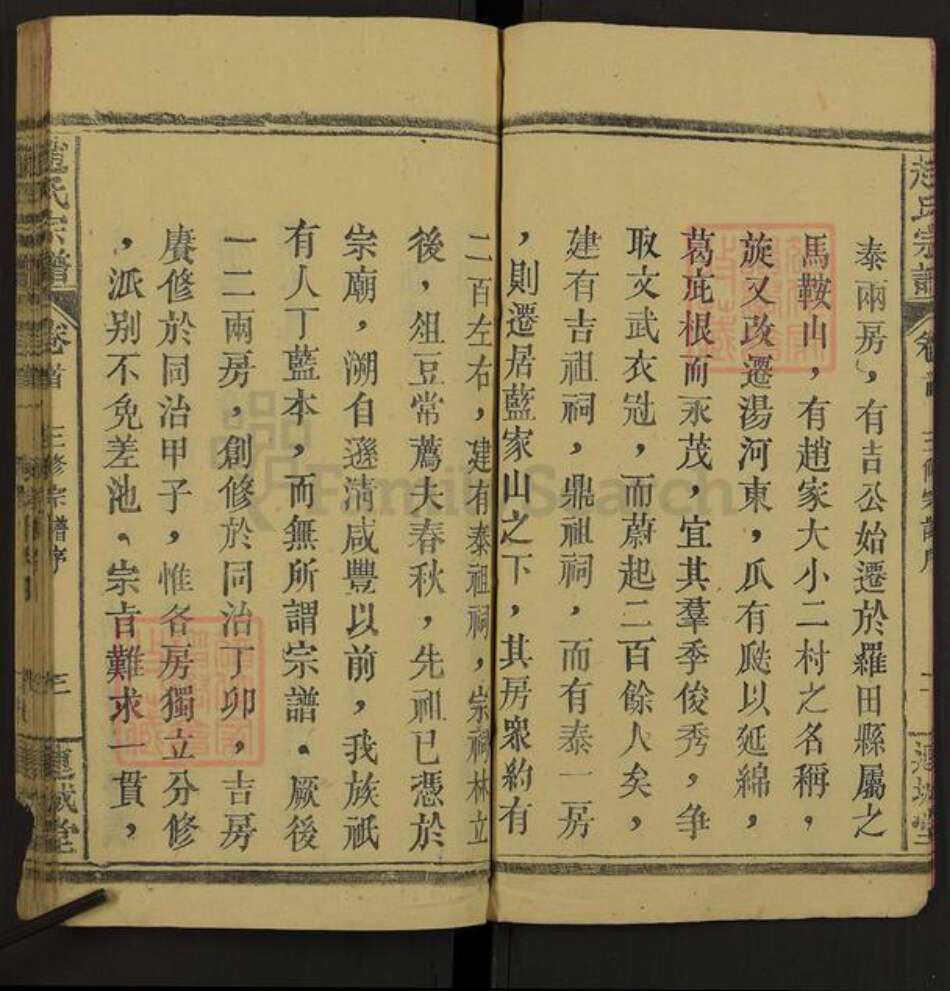 趙氏宗譜
泰兩房，有吉公始遷於羅田縣屬之
馬鞍山，有趙家大小二村之名稱，
旋又改遷湯河東，瓜有瓞以延綿，
葛庇根而永茂，宜其羣季俊秀，爭
取文武衣冠，而蔚起二百餘人矣，
建有吉祖祠，鼎祖祠，而有泰一房
，則遷居藍家山之下，其房衆約有
二百左右，建有泰祖祠，宗祠林立
後，俎豆常薦夫春秋，先祖已憑於
宗廟，溯自遜清咸豐以前，我族祇
有人丁藍本，而無所謂宗譜。厥後
一二兩房，創修於同治丁卯，吉房
賡修於同治甲子，惟各房獨立分修
，派别不免差池。宗旨難求一貫，
趙氏宗譜
卷首
三修宗譜序
三
連城堂